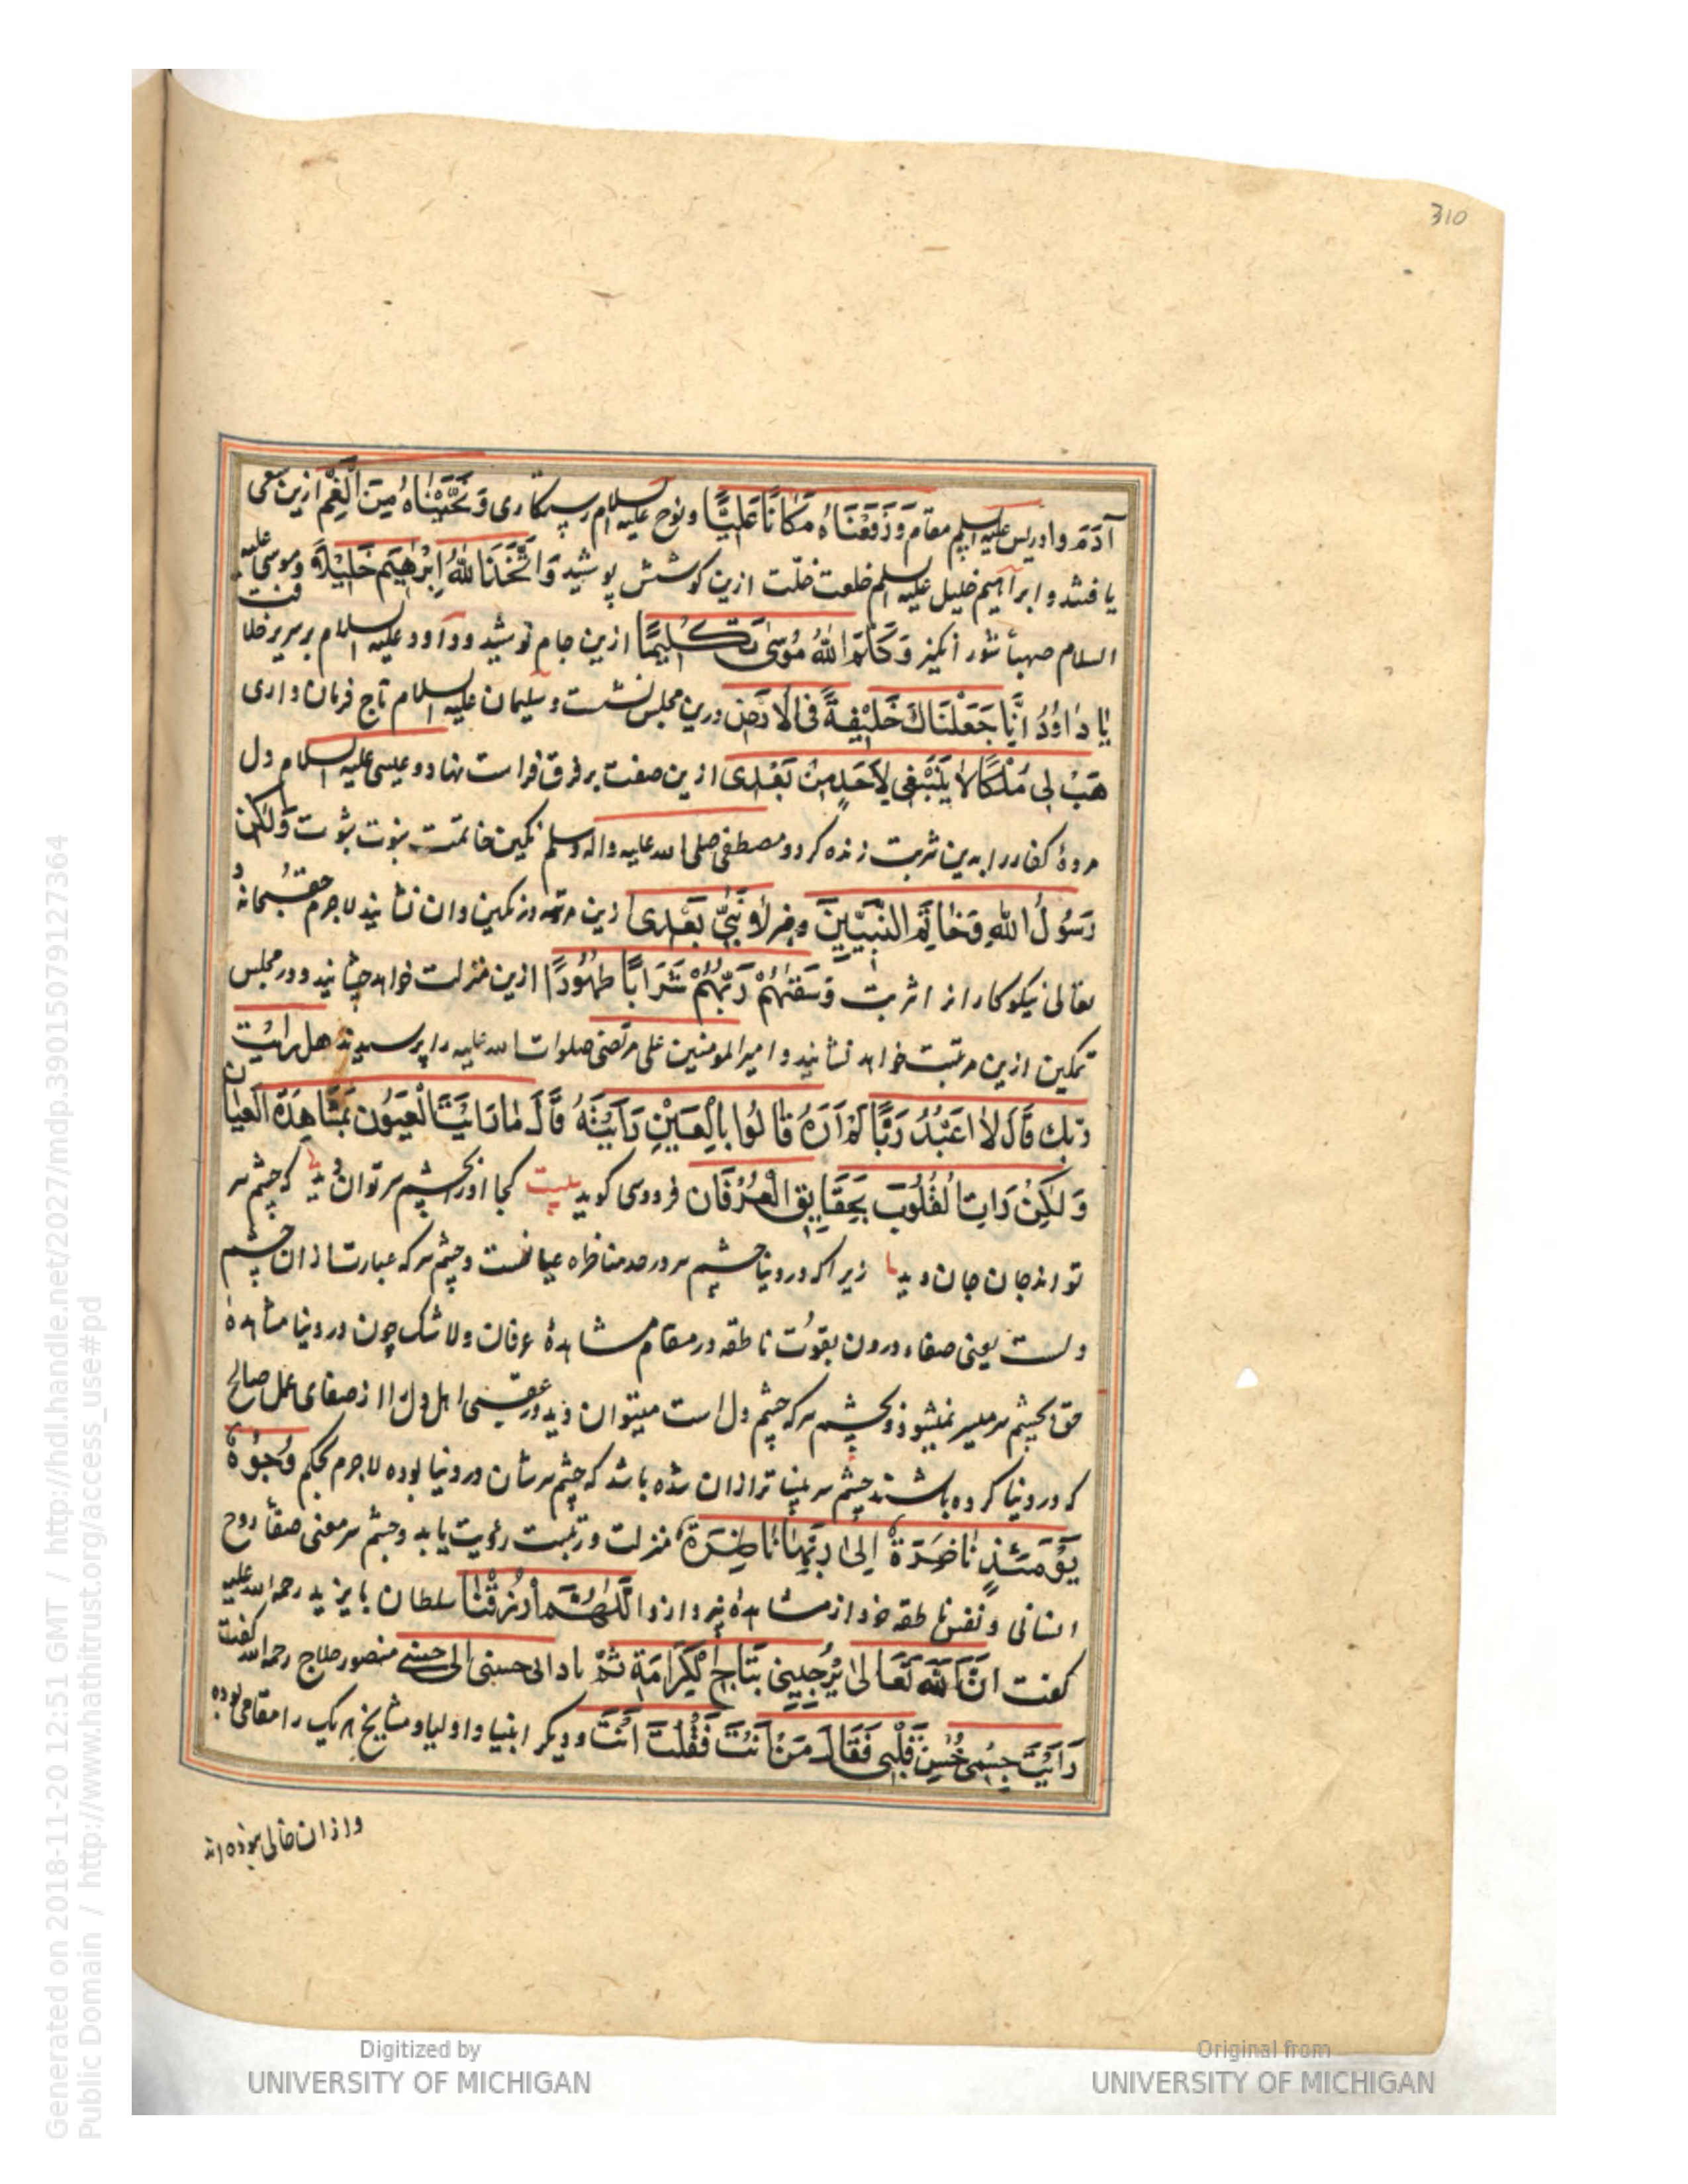 310
آدَمَ و ادریس علیه السلم مقام وَرَفَعْنَاهُ مَكَانًا عَلِيًّا و نوح علیه السلام رستکاری وَنَجَّيْنَاهُ مِنَ الْغَمِّ ازین سعی
یافتند و ابرآهیم خلیل علیه السلم خلعت خلّت ازین کوشش پوشید وَاتَّخَذَ اللهُ اِبْرٰهِيمَ خَلِيْلًا و موسی علیه
السلام صهبأ شور انکیز وَكَلَّمَ اللهُ مُوسٰى تَكْلِيمًا ازین جام نوشید و دآود علیه السلام بر سریر خلافت
يٰا دٰاوُدُ اِنَّا جَعَلْنَاكَ خَلِيْفَةً فِى الْاَرْضِ درین مجلس نشست و سلیمان علیه السلام تاج فرمان داری
هَبْ لِى مُلْكًا لَا يَنْبَغِى لِاَحَدٍ مِنْ بَعْدِى ازین صفت بر فرق نهاد و عیسی علیه السلام دل
مردهٔ کفار را بدین شربت زنده کرد و مصطفی صلی الله علیه واله وسلم نکین خاتمت نبوت وَلٰكِن
رَسُولُ اللهِ وَخَاتَمَ النَّبِيّينَ نَبِىَّ بَعْدِى ازین مرتبه در نکین دان نشانید لاجرم حق سبحانه و
تعالی نیکوکارانرا شربت وَسَقٰهُمْ رَبُّهُمْ شَرَابًا طَهُورًا ازین منزلت خواهد چشانید و در مجلس
تمکین ازین مرتبت خواهد نشانید و امیر المومنین علی مرتضی صلوات الله علیه را پرسیدند هل رایت
رَبك قَالَ لَا اَعْبُدُ رَبًّا لَمْ اَرَهُ قَالُوا بِالْعَيْنِ رَاَيْتَهُ قَالَ مَا رَاَيْتَ الْعُيُون بِمُشَاهِدَةِ الْعَيَان
وَلٰكِنْ رَاَتِ الْقُلُوبَ بِحَقَايِقِ الْعِرْفَان فردوسی کوید بیت کجا او را بچشم سر توان دید که چشم سر
تواند جان جان دید زیرا که در دنیا چشم سر در صدد مناظره عیانست و چشم سر که عبارت از ان چشم
دلست یعنی صفاء درون بقوّت ناطقه در مقام مشاهدهٔ عرفان ولا شک چون در دنیا مشاهدهٔ
حق بچشم سر میسر نمیشود و بچشم سر که چشم دل است میتوان دید در عقبی اهل دل را از صفای عمل صالح
که در دنیا کرده باشند چشم سر بینا تر ازان شده باشد که چشم سر شان در دنیا بوده لاجرم بحکم وُجُوهٌ
يَوْمَئِذٍ نَاضِرَةٌ اِلٰى رَبِّهَا نَاظِرَةٌ منزلت و رتبت رؤیت یابد و چشم سر معنی صفأ روح
انسانی و نفس ناطقه خود از مشاهده نپردازد اَللّٰهُمَّ ارْزُقْنَا سلطان بایزید رحمه الله علیه
کفت اِنَّ اللهَ تَعَالٰى بِتَاجِ الْكَرَامَةِ ثُمَّ منصور حلاج رحمه الله کفت
رَاَيْتَ قَلْبِى فَقَالَ مَنْ اَنْتَ فَقُلْتَ اَنْتَ و دیکر انبیا و اولیا و مشایخ هریک را مقامی بوده
و ازان خالی نبوده اند
Digitized by
UNIVERSITY OF MICHIGAN
Original from
UNIVERSITY OF MICHIGAN
Generated on 2018-11-20 12:51 GMT / http://hdl.handle.net/2027/mdp.39015079127364
Public Domain / http://www.hathitrust.org/access_use#pd